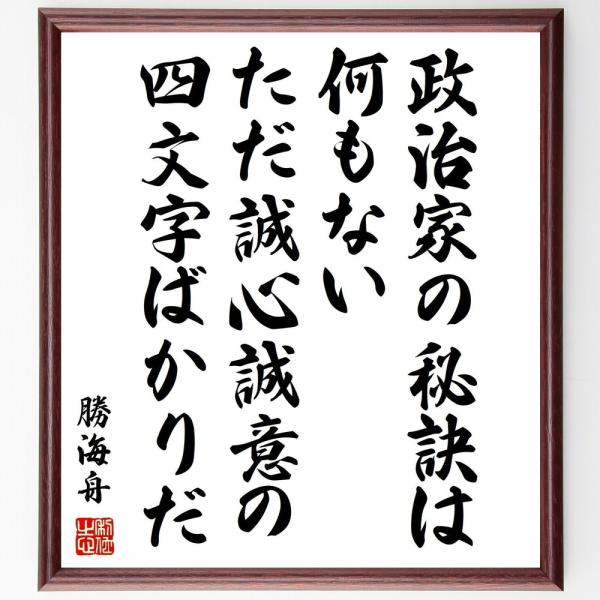 政治家の秘訣は
何もない
ただ誠心誠意の
四文字ばかりだ
勝海舟